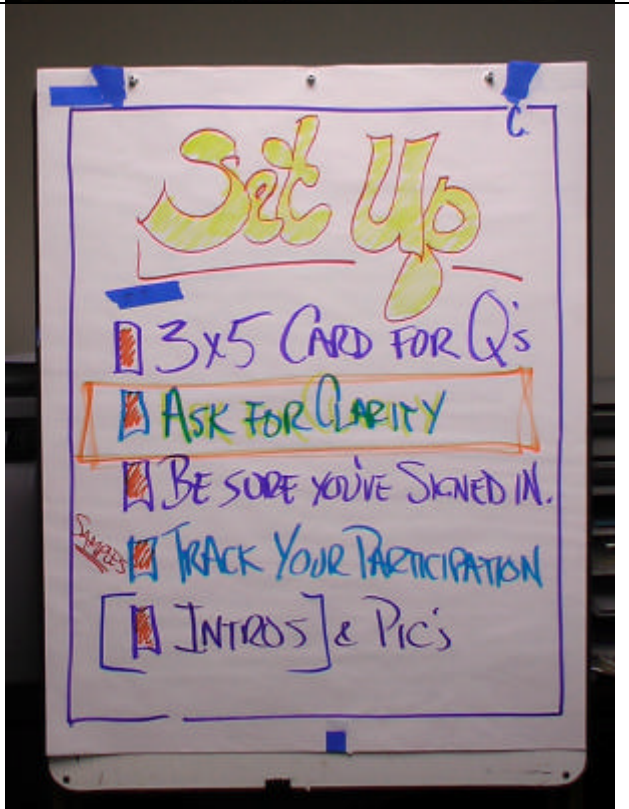 C
Set Up
3x5 CARD FOR Q's
ASK FOR CLARITY
BE SURE YOU'VE SIGNED IN.
SAMPLES
TRACK YOUR PARTICIPATION
[INTROS] & PIC's